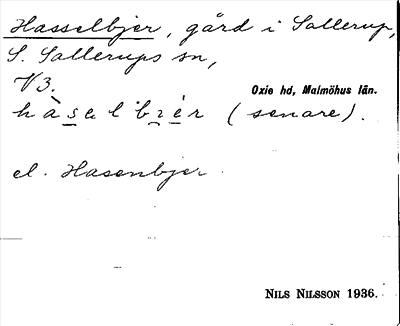 Hasselbjer, gård i Sallerup,
S. Sallerups sn,
V3.
Oxie hd, Malmöhus län.
hàsɐlbɪér (senare).
el. Hasenbjer
NILS NILSSON 1936.